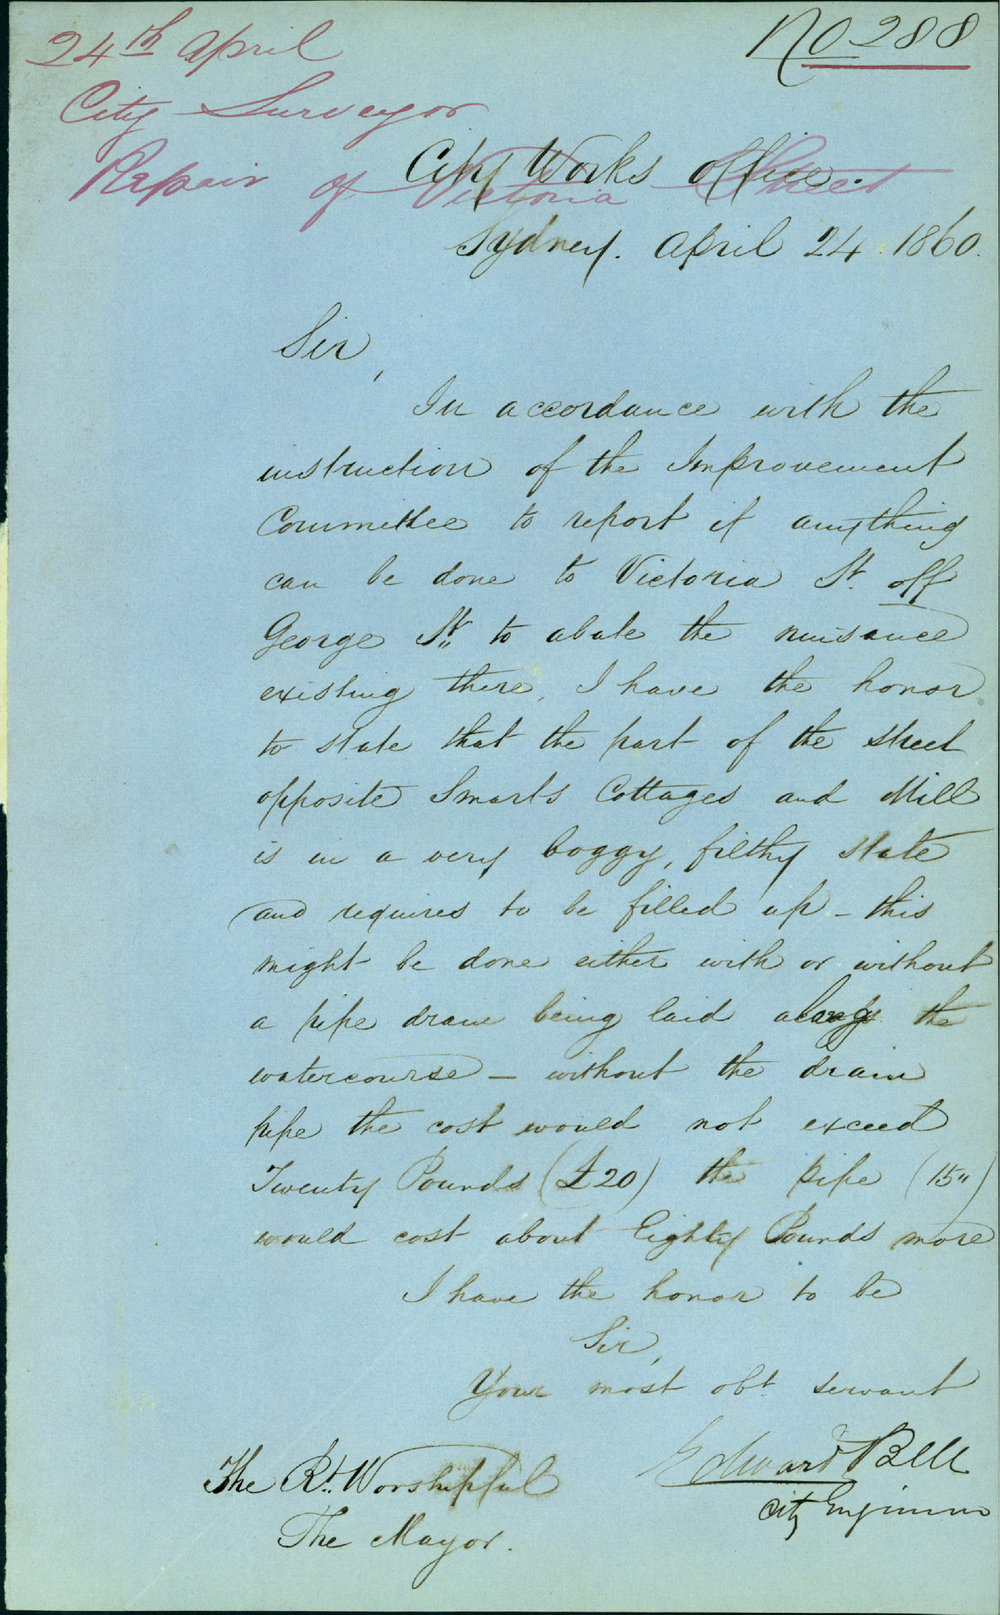 No 288
24th April
City Surveyor
Repair of Victoria Street
City Works Office.
Sydney. April 24 1860.
Sir,
In accordance with the
instruction of the Improvement
Committee to report if anything
can be done to Victoria St. off
George St. to abate the nuisance
existing there, I have the honor
to state that the part of the street
opposite Smarts Cottages and Mill
is in a very boggy, filthy state
and requires to be filled up - this
might be done either with or without
a pipe drain being laid along the
watercourse - without the drain
pipe the cost would not exceed
Twenty Pounds (£20) the pipe (15")
would cost about Eighty Pounds more
I have the honor to be
Sir,
Your most obt. servant
Edward Bell
City Engineer
The Rt. Worshipful
The Mayor.